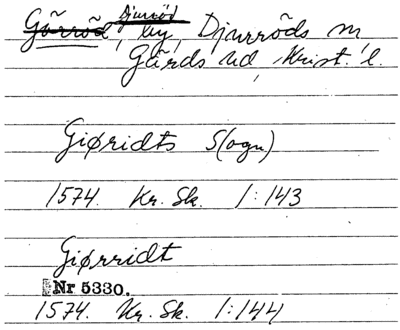 Djurröd
Görröd, by, Djurröds sn
Gärds hd, Krist. l.
Giøridts S(ogn)
1574. Kr. Sk. 1:143
Giørridt
Nr 5330.
1574. Kr. Sk. 1:144